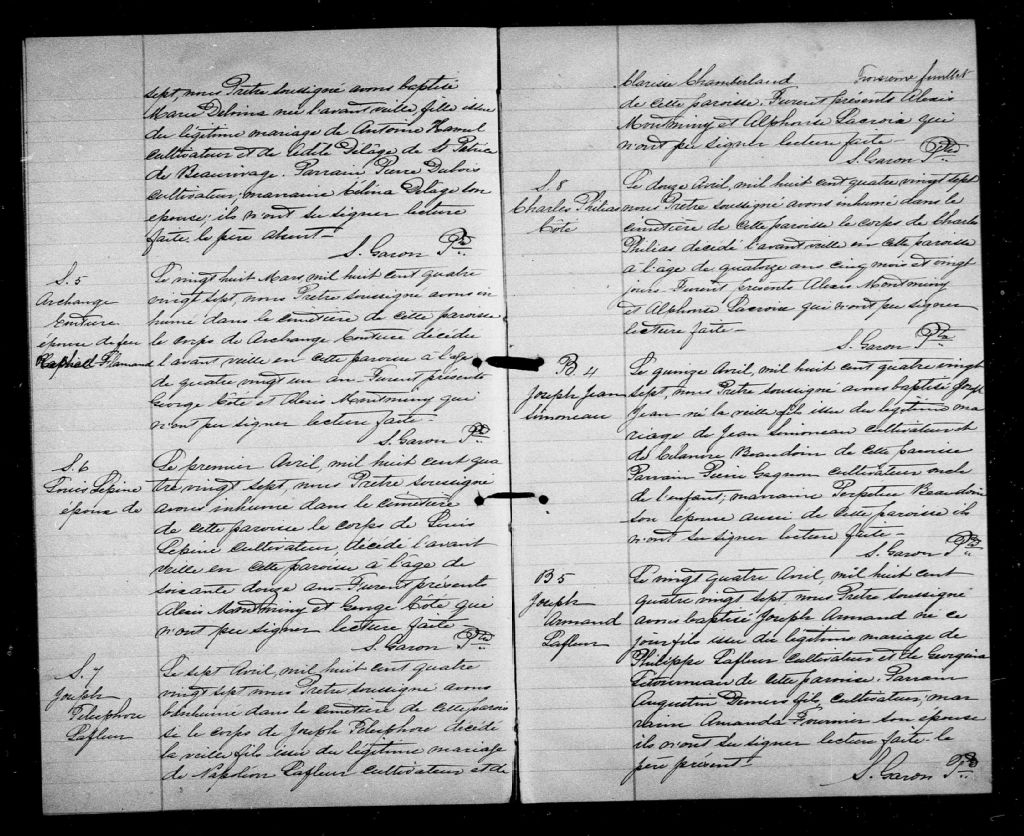 sept, nous Prêtre soussigné avons baptisé
Marie Delvina née l'avant veille, fille issue
du légitime mariage de Antoine Hamel
cultivateur et de Delage de St Patrice
de Beaurivage. Parrain, Pierre Dubois
cultivateur, marraine Célina Delage son
épouse; ils n'ont su signer lecture
faite. le père absent—
S. Garon Ptre
S. 5
Archange
Couture
épouse de feu
Raphael Flamand
Le vingt huit Mars mil huit cent quatre
vingt sept, nous Prêtre soussigné avons in
humé dans le cimetière de cette paroisse
le corps de Archange Couture décédée
l'avant veille en cette paroisse à l'age
de quatre vingt un an. Furent présents
George Côté et Alexis Montminy qui
n'ont pu signer lecture faite—
S. Garon Ptre
S. 6
Louis Lépine
époux de
Le premier Avril, mil huit cent qua
tre vingt sept, nous Prêtre soussigné
avons inhumé dans le cimetière
de cette paroisse le corps de Louis
Lépine cultivateur, décédé l'avant
veille en cette paroisse à l'age de
soixante douze ans. Furent présent
Alexis Montminy et George Côté qui
n'ont pu signer lecture faite—
S. Garon Ptre
S. 7
Joseph
Telesphore
Lafleur
Le sept Avril, mil huit cent quatre
vingt sept nous Prêtre soussigné avons
inhumé dans le cimetière de cette parois
se le corps de Joseph Telesphore décédé
la veille fils issu du légitime mariage
de Napoléon Lafleur cultivateur et de
Troisième feuillet
Clarisse Chamberland
de cette paroisse. Furent présents Alexis
Montminy et Alphonse Lacroix qui
n'ont pu signer lecture faite—
S. Garon Ptre
S. 8
Charles Philias
Côté
Le douze Avril, mil huit cent quatre vingt sept
nous Prêtre soussigné avons inhumé dans le
cimetière de cette paroisse le corps de Charles
Philias décédé l'avant veille en cette paroisse
à l'âge de quatorze ans cinq mois et vingt
jours. Furent présents Alexis Montminy
et Alphonse Lacroix qui n'ont pu signer
lecture faite—
S. Garon Ptre
B 4
Joseph Jean
Simoneau
Le quinze Avril, mil huit cent quatre vingt
sept, nous Prêtre soussigné avons baptisé Joseph
Jean né la veille fils issu du légitime ma
riage de Jean Simoneau cultivateur et
de Eleanore Beaudoin de cette paroisse
Parrain Pierre Gagnon cultivateur oncle
de l'enfant; marraine Perpétue Beaudoin
son épouse aussi de cette paroisse ils
n'ont su signer lecture faite—
S. Garon Ptre
B 5
Joseph
Armand
Lafleur
Le vingt quatre Avril, mil huit cent
quatre vingt sept, nous Prêtre soussigné
avons baptisé Joseph Armand né ce
jour fils issu du légitime mariage de
Philippe Lafleur cultivateur et de Georgina
Létourneau de cette paroisse. Parrain
Augustin Demers fils, cultivateur; mar
raine Amanda Fournier son épouse
ils n'ont su signer lecture faite. le
père présent—
S. Garon Ptre